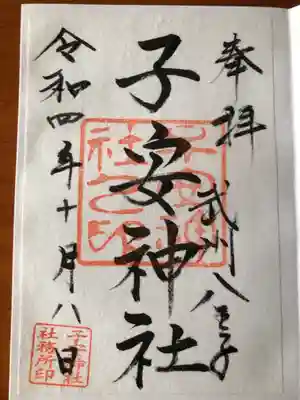 奉拝
武州八王子
子安神社
令和四年十月八日
子安神社
社務所印